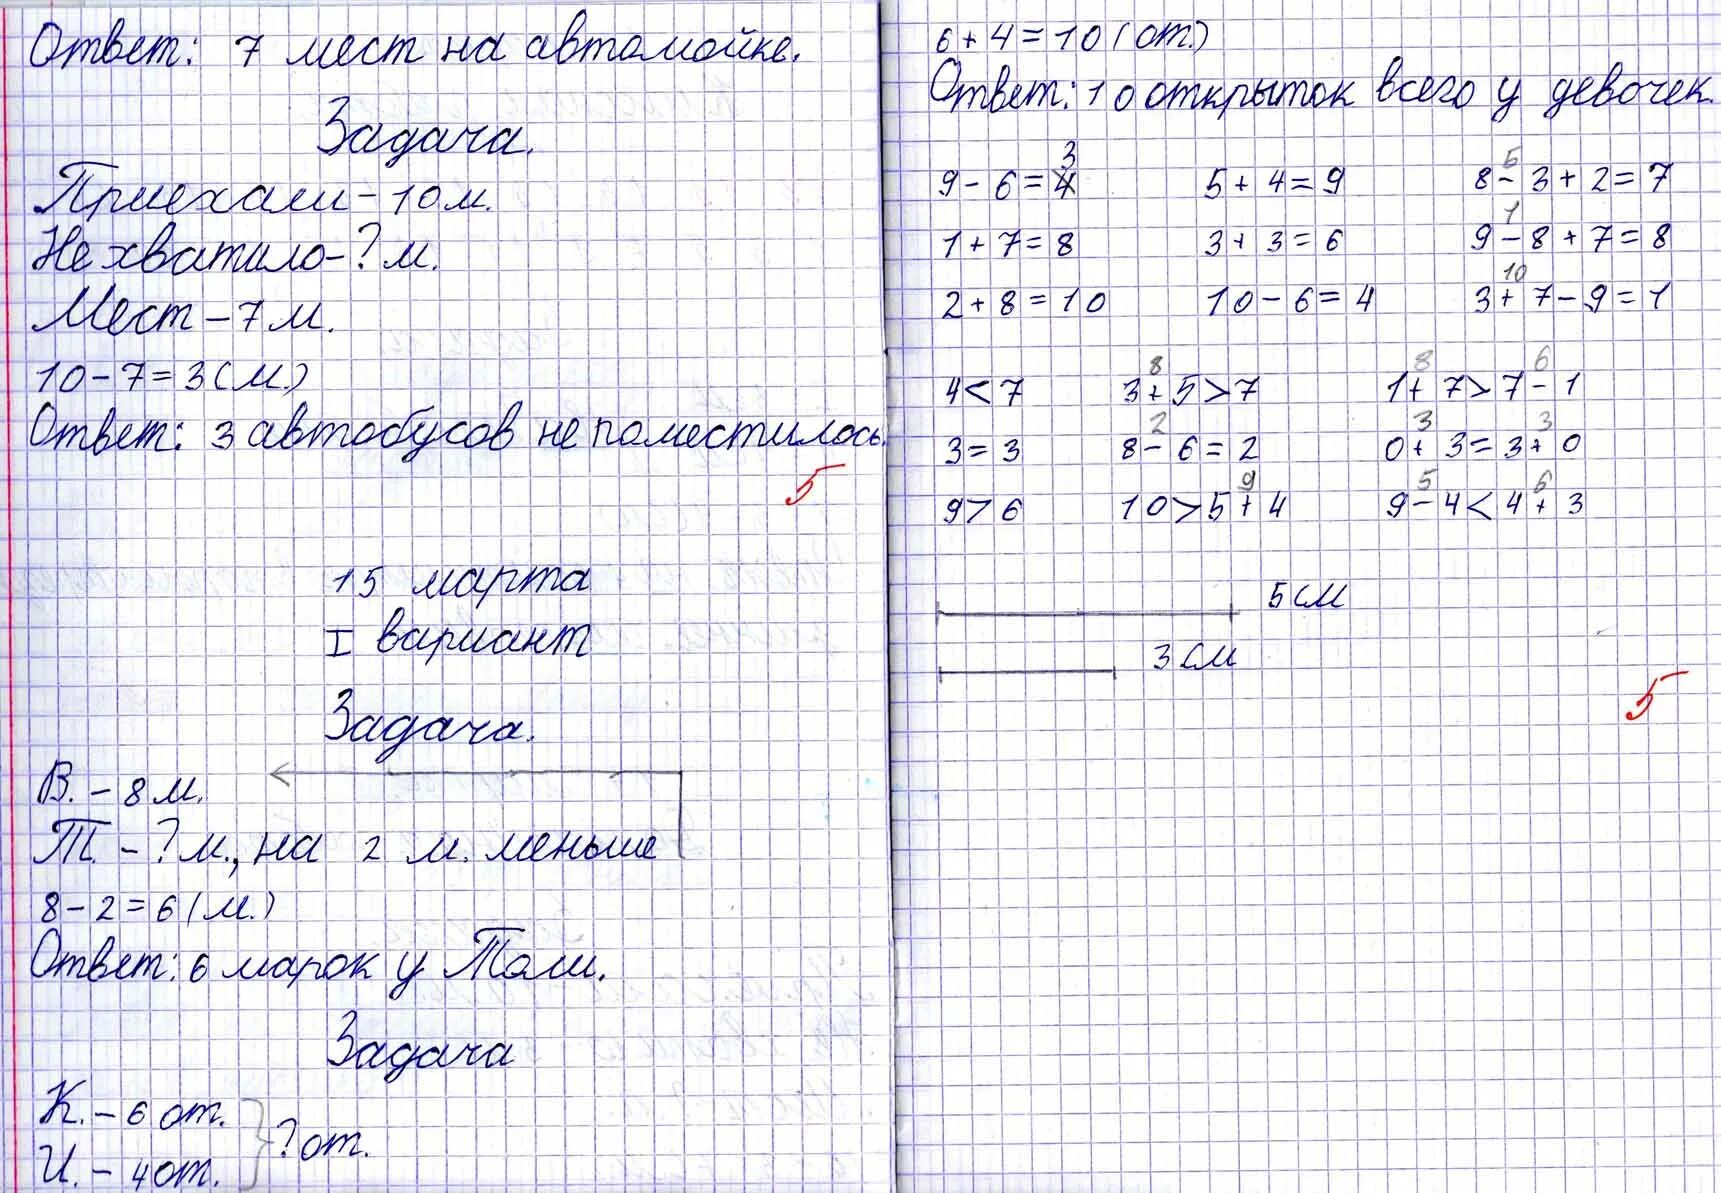 Ответ: 7 мест на автомойке.
Задача.
Приехали – 10 м.
Не хватило – ? м.
Мест – 7 м.
10 – 7 = 3 (м.)
Ответ: 3 автобусов не поместилось.
5
15 марта
I вариант
Задача.
В. – 8 м.
Т. – ? м., на 2 м. меньше
8 – 2 = 6 (м.)
Ответ: 6 марок у Толи.
Задача
К. – 6 от.
И. – 4 от.
? от.
6 + 4 = 10 (от.)
Ответ: 10 открыток всего у девочек.
3 5
9 – 6 = 4 5 + 4 = 9 8 – 3 + 2 = 7
1
1 + 7 = 8 3 + 3 = 6 9 – 8 + 7 = 8
10
2 + 8 = 10 10 – 6 = 4 3 + 7 – 9 = 1
8 8 6
4 < 7 3 + 5 > 7 1 + 7 > 7 – 1
2 3 3
3 = 3 8 – 6 = 2 0 + 3 = 3 + 0
9 5 6
9 > 6 10 > 5 + 4 9 – 4 < 4 + 3
5 см
3 см
5